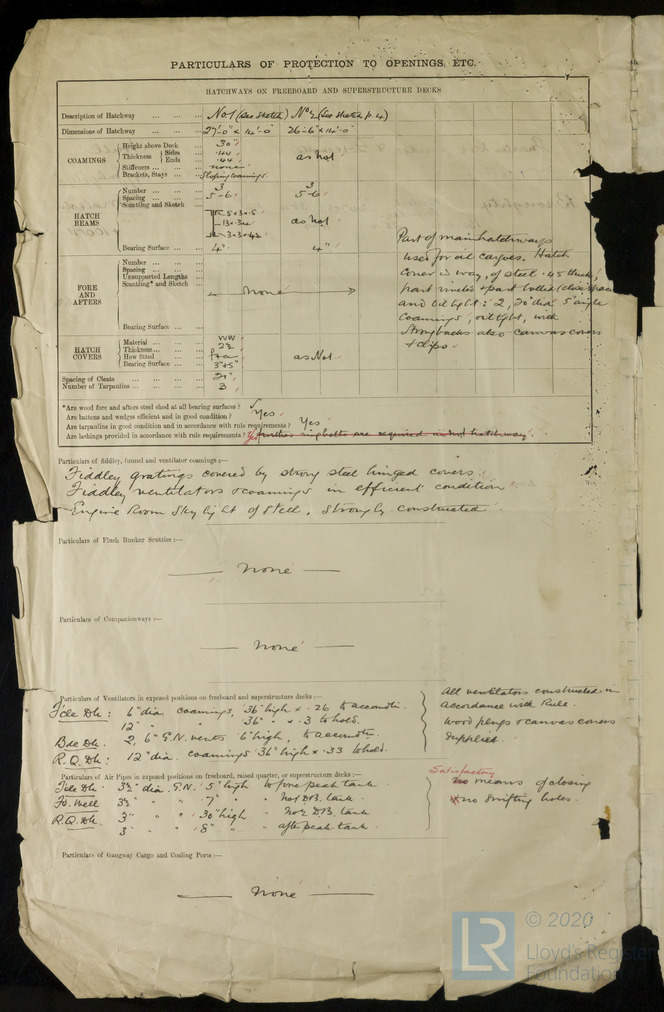 PARTICULARS OF PROTECTION TO OPENINGS, ETC.
HATCHWAYS ON FREEBOARD AND SUPERSTRUCTURE DECKS
Description of Hatchway ... ... ... No1 (See sketch) No2 (See sketch p.4)
Dimensions of Hatchway ... ... ... 27'-0" x 14'-0" 26'-6" x 14'-0"
COAMINGS
Height above Deck ... 30"
Thickness { Sides ... .44
Ends ... .44 as No1
Stiffeners ... ... none
Brackets, Stays ... Sloping coamings
HATCH BEAMS
Number ... ... ... 3 3
Spacing ... ... ... 5'-6" 5'-6"
Scantling and Sketch
as No1
Bearing Surface ... ... 4" 4"
FORE AND AFTERS
Number ... ... ...
Spacing ... ... ...
Unsupported Lengths
Scantling* and Sketch
None
Bearing Surface ... ...
HATCH COVERS
Material ... ... ... WW
Thickness ... ... ... 2½
How fitted ... ... f & a as No1
Bearing Surface ... ... 3"
Spacing of Cleats ... ... ... ... 24"
Number of Tarpaulins ... ... ... ... 3
Part of main hatchways
used for oil cargoes. Hatch
cover in way, of steel .45 thick,
part rivetted & part bolted (close space
and oil tight: 2, 20" dia 5" angle
coamings, oil tight, with
Strongbacks also canvas covers
& clips.
*Are wood fore and afters steel shod at all bearing surfaces ?
Are battens and wedges efficient and in good condition ? Yes.
Are tarpaulins in good condition and in accordance with rule requirements ? Yes
Are lashings provided in accordance with rule requirements ? Yes further ringbolts are required in No1 hatchway.
Particulars of fiddley, funnel and ventilator coamings :—
Fiddley gratings covered by strong steel hinged covers.
Fiddley ventilators & coamings in efficient condition
Engine Room Skylight of Steel, strongly constructed
Particulars of Flush Bunker Scuttles :—
None
Particulars of Companionways :—
None
Particulars of Ventilators in exposed positions on freeboard and superstructure decks :—
Fcle Dk: 6" dia. coamings, 36" high x .26 to accomdn.
12" " " 36" " x .3 to hold.
Bdge Dk. 2, 6" G.N. vents 6" high, to accomdn.
R.Q. Dk: 12" dia. coamings 36" high x .33 to hold.
All ventilators constructed in
accordance with Rule.
Wood plugs & canvas covers
supplied.
Particulars of Air Pipes in exposed positions on freeboard, raised quarter, or superstructure decks :—
Fcle Dk. 3½" dia. G.N. 5" high to fore peak tank
Fd. Well 3½ " " 7" " " No1 D.B. tank.
R.Q. Dk 3" " " 30" high " No2 D.B. tank
3" " " 8" " " after peak tank.
Satisfactory
no means of closing
& no drifting holes.
Particulars of Gangway Cargo and Coaling Ports :—
None
LR
© 2020
Lloyd's Register
Foundation